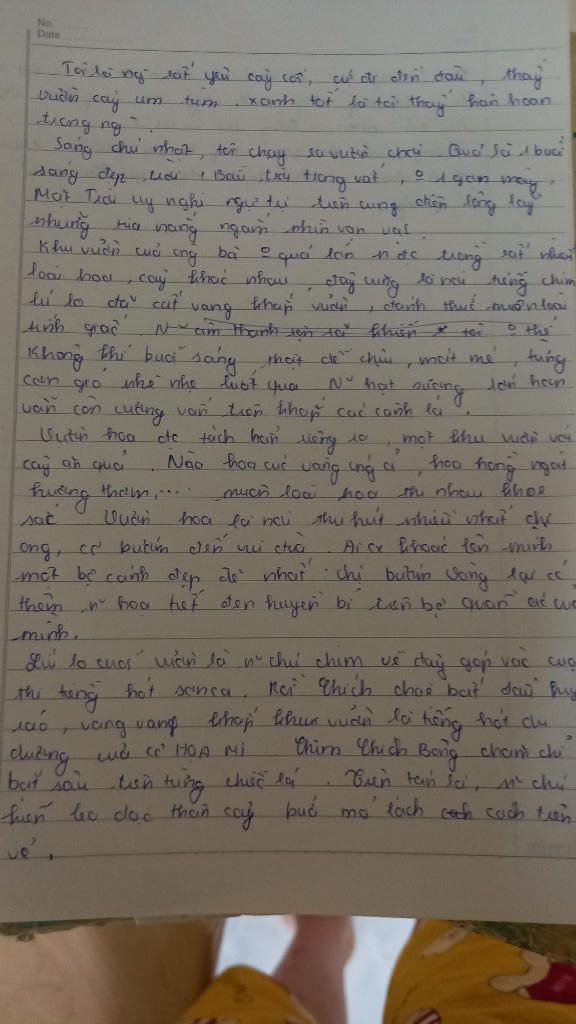 No.
Date
Tôi là ng rất yêu cây cối, cứ đi đến đâu, thấy
vườn cây um tùm, xanh tốt là tôi thấy hân hoan
trong ng.
Sáng chủ nhật, tôi chạy ra vườn chơi. Quả là 1 buổi
sáng đẹp trời! Bầu trời trong vắt, o 1 gợn mây,
Mặt Trời uy nghi ngự trị trên cung điện lộng lẫy
những tia nắng ngắm nhìn vạn vật.
Khu vườn của ông bà o quá lớn n đc trồng rất nhiều
loài hoa, cây khác nhau, đây cũng là nơi tiếng chim
líu lo đã cất vang khắp vườn, đánh thức muôn loài
tỉnh giấc. N~ âm thanh
Không khí buổi sáng, thật dễ chịu, mát mẻ, từng
cơn gió nhè nhẹ lướt qua N~ hạt sương
vẫn còn vương vấn trên khắp các cành lá.
Vườn hoa đc tách hẳn riêng ra, một khu vườn với
cây ăn quả. Nào hoa cúc vàng óng ả, hoa hồng ngát
hương thơm,... muôn loài hoa thi nhau khoe
sắc Vườn hoa là nơi thu hút nhiều nhất chị
ong, cô bướm đến vui chơi. Ai cx khoác lên mình
một bộ cánh đẹp đẽ nhất: chị bướm vàng lại có
thêm n~ hoạ tiết đen huyền bí trên bộ quần áo của
mình.
Líu lo cuối vườn là n~ chú chim về đây góp vào cuộc
thi tiếng hót sơn ca. Kìa! Chích choè bắt đầu huýt
sáo, vang vang khắp khu vườn là tiếng hót du
dương của cô HOẠ MI Chim Chích Bông chăm chỉ
bắt sâu trên từng chiếc lá. Trên tán lá, n~ chú
kiến leo dọc thân cây
về.